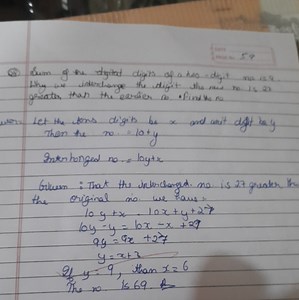 54
Q Sum of the digital digits of a two-digit no is 9.
Why we interchange the digit the new no is 27
greater than the earlier no. Find the no
Let the tens digits be x and unit digit be y
Then the no = 10+y
Interchanged no = 10y+x
Given : That the interchanged no. is 27 greater
the original no we have :-
10y+x = 10x+y+27
10y-y = 10x-x+27
9y = 9x + 27
y = x+3
If y = 9, than x = 6
The no is 69